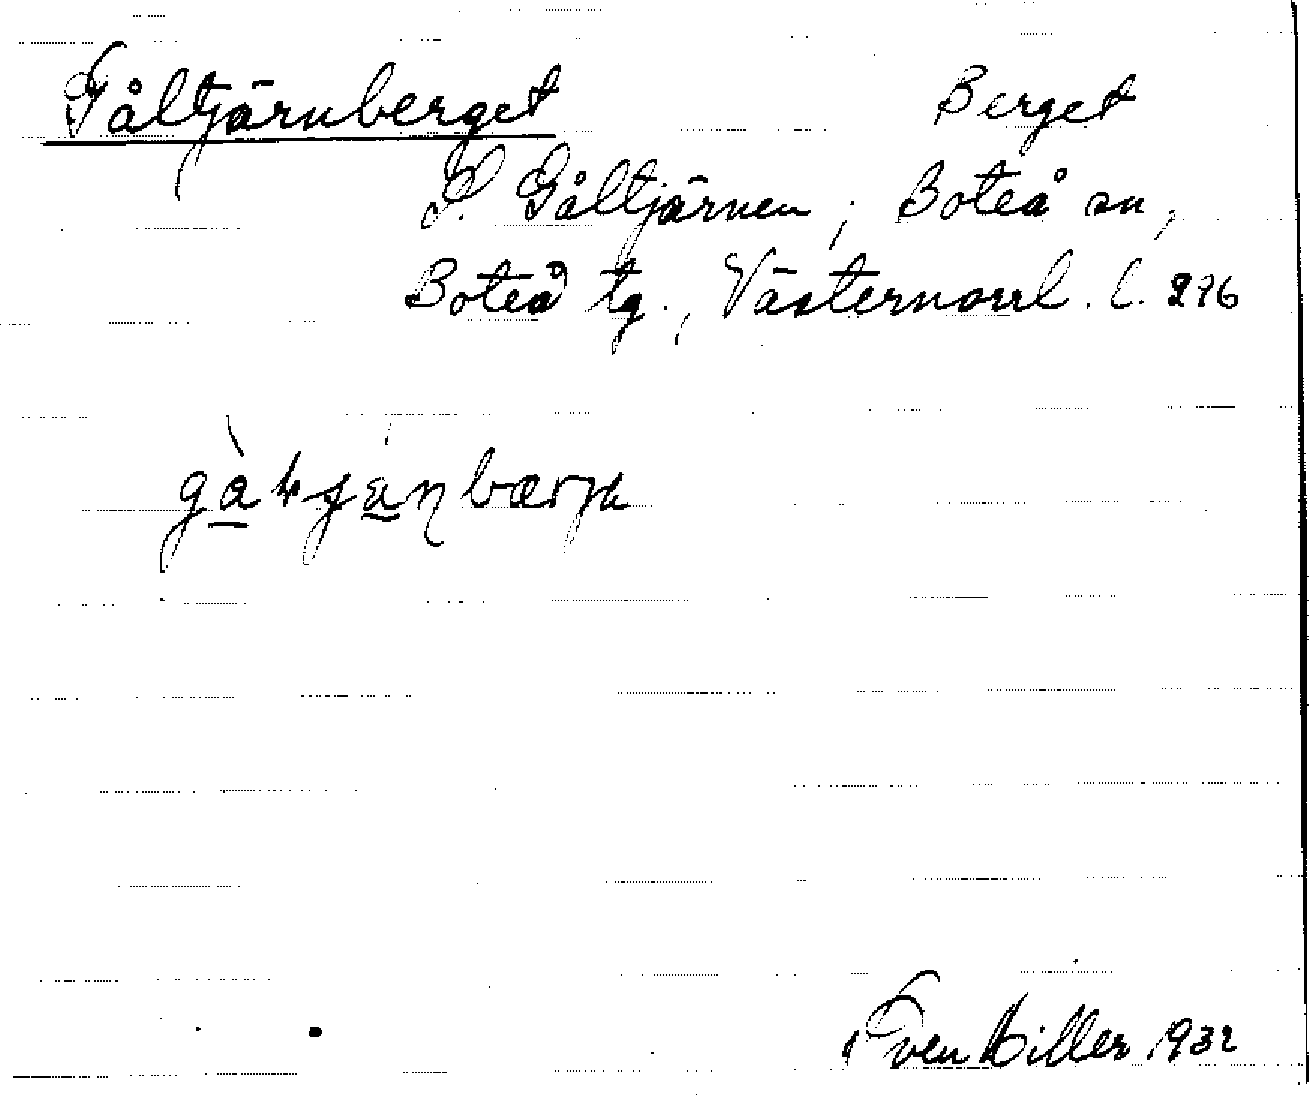 Gåltjärnberget Berget
S. Gåltjärnen, Boteå sn,
Boteå tg., Västernorrl. l. 276
Sven Hiller 1932